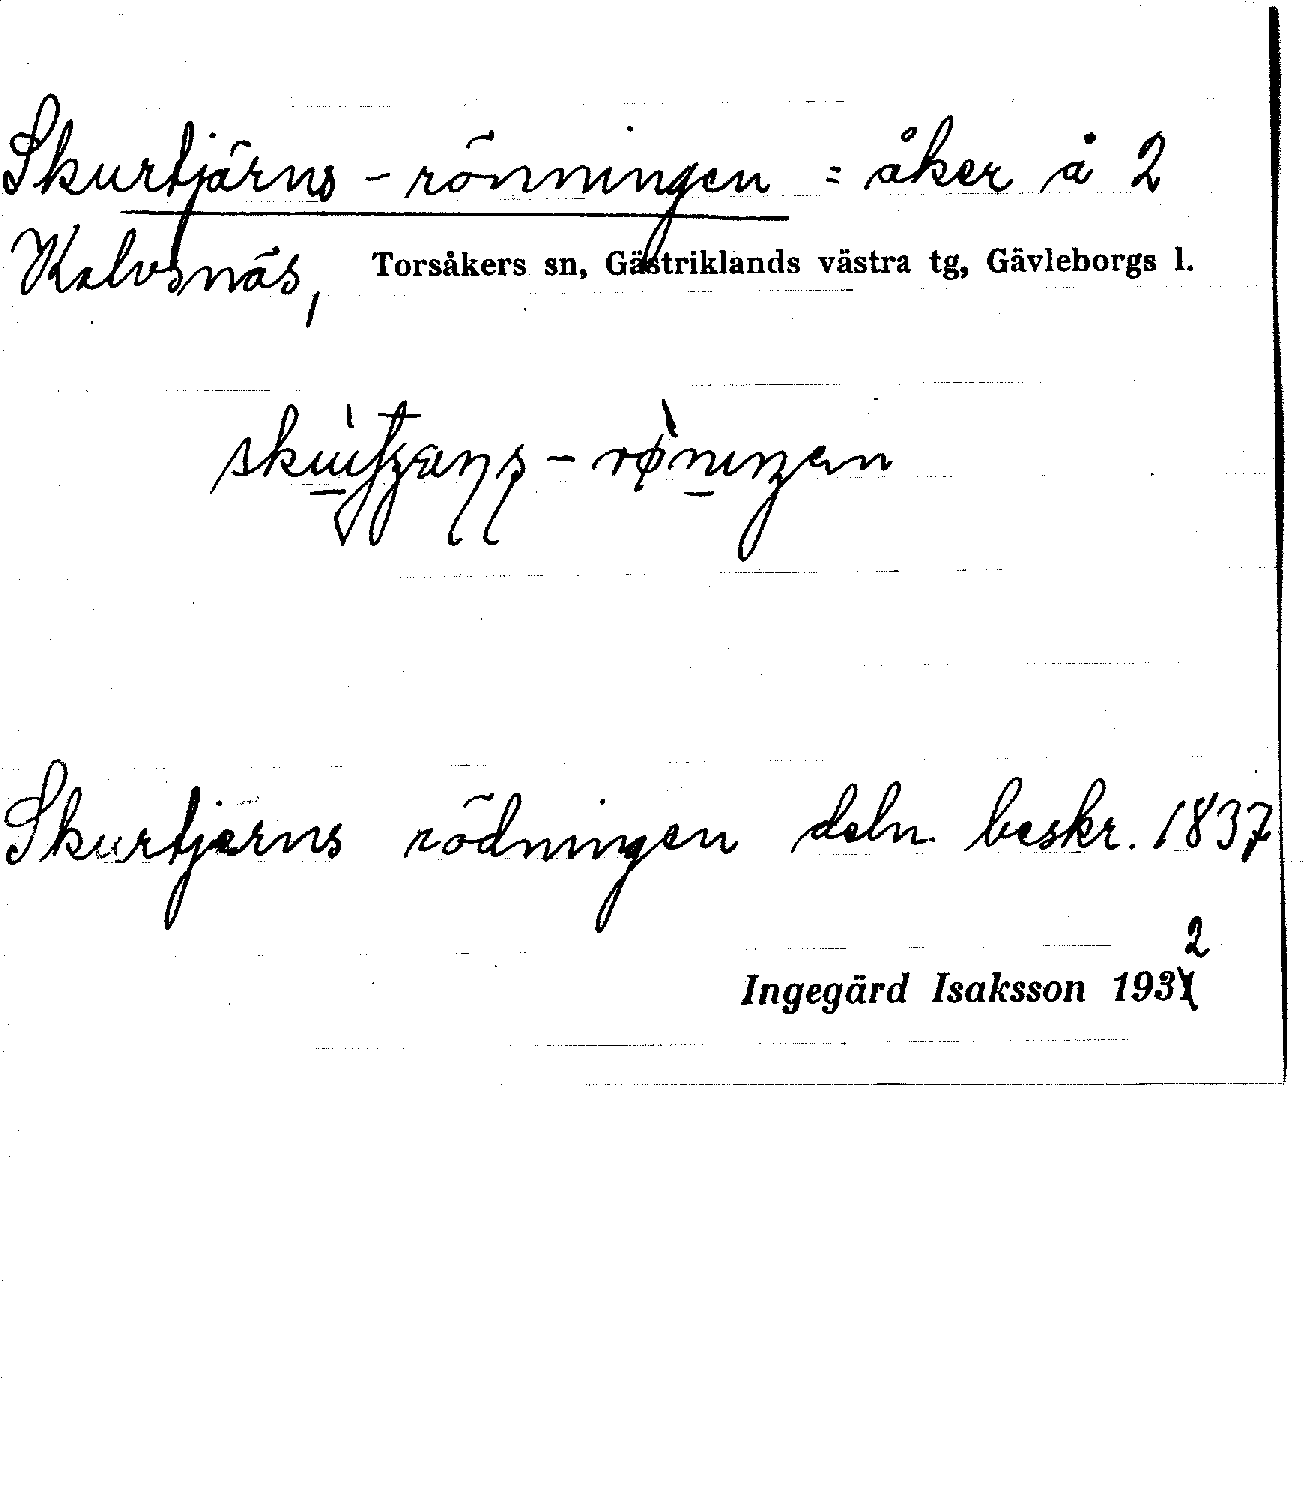 Skurtjärns - rönningen = åker å 2
Kalvsnäs, Torsåkers sn, Gästriklands västra tg, Gävleborgs l.
Skurtjerns rödningen deln. beskr. 1837
2
Ingegärd Isaksson 1931